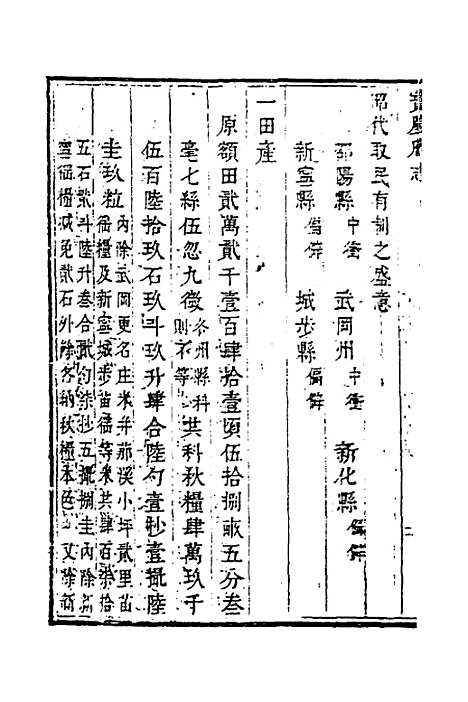 寶慶府志
昭代取民有制之盛意
邵陽縣 中衝 武岡州 中衝 新化縣 偏僻
新寧縣 偏僻 城步縣 偏僻
一田產
原額田貳萬貳千壹百肆拾壹頃伍拾捌畝五分叁
毫七絲伍忽九微 各州縣科則不等 共科秋糧肆萬玖千
伍百陸拾玖石玖斗玖升肆合陸勺壹秒壹撮陸
圭玖粒 內除武岡更名庄米并茆溪小坪貳里苗
徭糧及新寧城步苗徭等米共肆百柒拾
五石貳斗陸升叁合貳勺柒抄五撮捌圭內除
寧徭糧減免貳石外除各納秋糧本色 又除